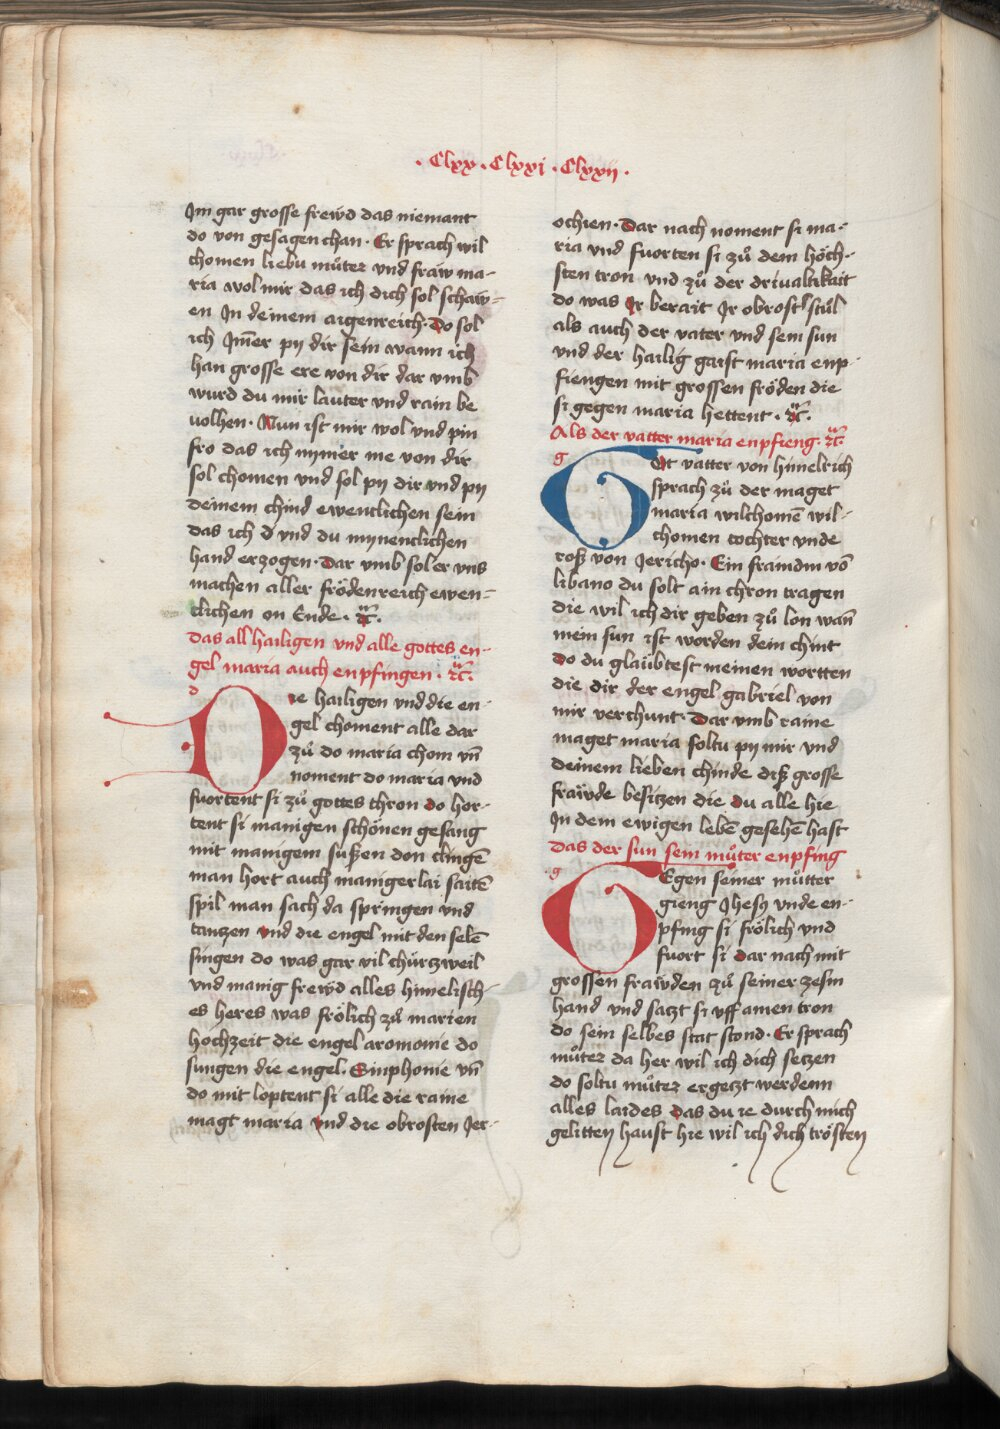 . Clxx . Clxxi . Clxxii .
Im gar grosse frewd das niemant
do von gesagen chan . Er sprach wil
chomen liebu můter vnd fraw ma-
ria wol mir das ich dich sol schaw=
en In deinem aigenreich . Do sol
ich Im̃er py dir sein wann ich
han grosse ere von dir dar vmb
wurd du mir lauter vnd rain be
uolhen . Nun ist mir wol vnd pin
fro das ich nymer me von dir
sol chomen vnd sol py dir vnd py
deinem chind ewentlichen sein
das ich vnd du mynenclichen
hand erzogen . Dar vmb sol er vns
machen aller frödenreich ewen=
clichen on Ende . ꝛc̃ .
Das all hailigen vnd alle gottes en-
gel maria auch enpfingen . ꝛc̃ .
d
DIe hailigen vnd die en-
gel choment alle dar
zů do maria chom vñ
noment do maria vnd
fuortent si zů gottes thron do hor-
tent si manigen schönen gesang
mit manigem süßen don clingē
man hort auch maniger lai saitē
spil man sach da springen vnd
tanzen vnd die engel mit den selē
singen do was gar vil churtzweil
vnd manig frewd alles himelisch-
es heres was frölich zů marien
hochzeit die engel aromonie do
sungen die engel . Simphonie vñ
do mit loptent si alle die raine
magt maria vnd die obrosten Jer-
ochien . Dar nach noment si ma-
ria vnd fuorten si zů dem höch-
sten tron vnd zů der driualtikait
do was Ir berait Ir obrost stůl
als auch der vater vnd sein sun
vnd der hailig gaist maria enp-
fiengen mit grossen fröden die
si gegen maria hettent . ꝛc̃ .
Als der vatter maria enpfieng . ꝛc̃ .
g
GOt vatter von himelrich
sprach zů der maget
maria wilchomē wil-
chomen tochter vnde
roß von Jericho . Ein fraindin võ
libano du solt ain chron tragen
die wil ich dir geben zů lon wañ
mein sun ist worden dein chint
Do du glaübtest meinen wortten
die dir der engel gabriel von
mir verchunt . Dar vmb raine
maget maria soltu py mir vnd
deinem lieben chinde diß grosse
fraẅde besitzen die du alle hie
In dem ewigen lebē gesehē hast
Das der sun sein můter enpfing
g
GEgen seiner můtter
gieng Jhesꝯ vnde en-
pfing si frölich vnd
fuort si dar nach mit
grossen fraẅden zů seiner zesm
hand vnd satzt si vff ainen tron
do sein selbes stat stond . Er sprach
můter da her wil ich dich setzen
do soltu můter ergetzt werdenn
alles laides das du ie durch mich
gelitten haust hie wil ich dich trösten